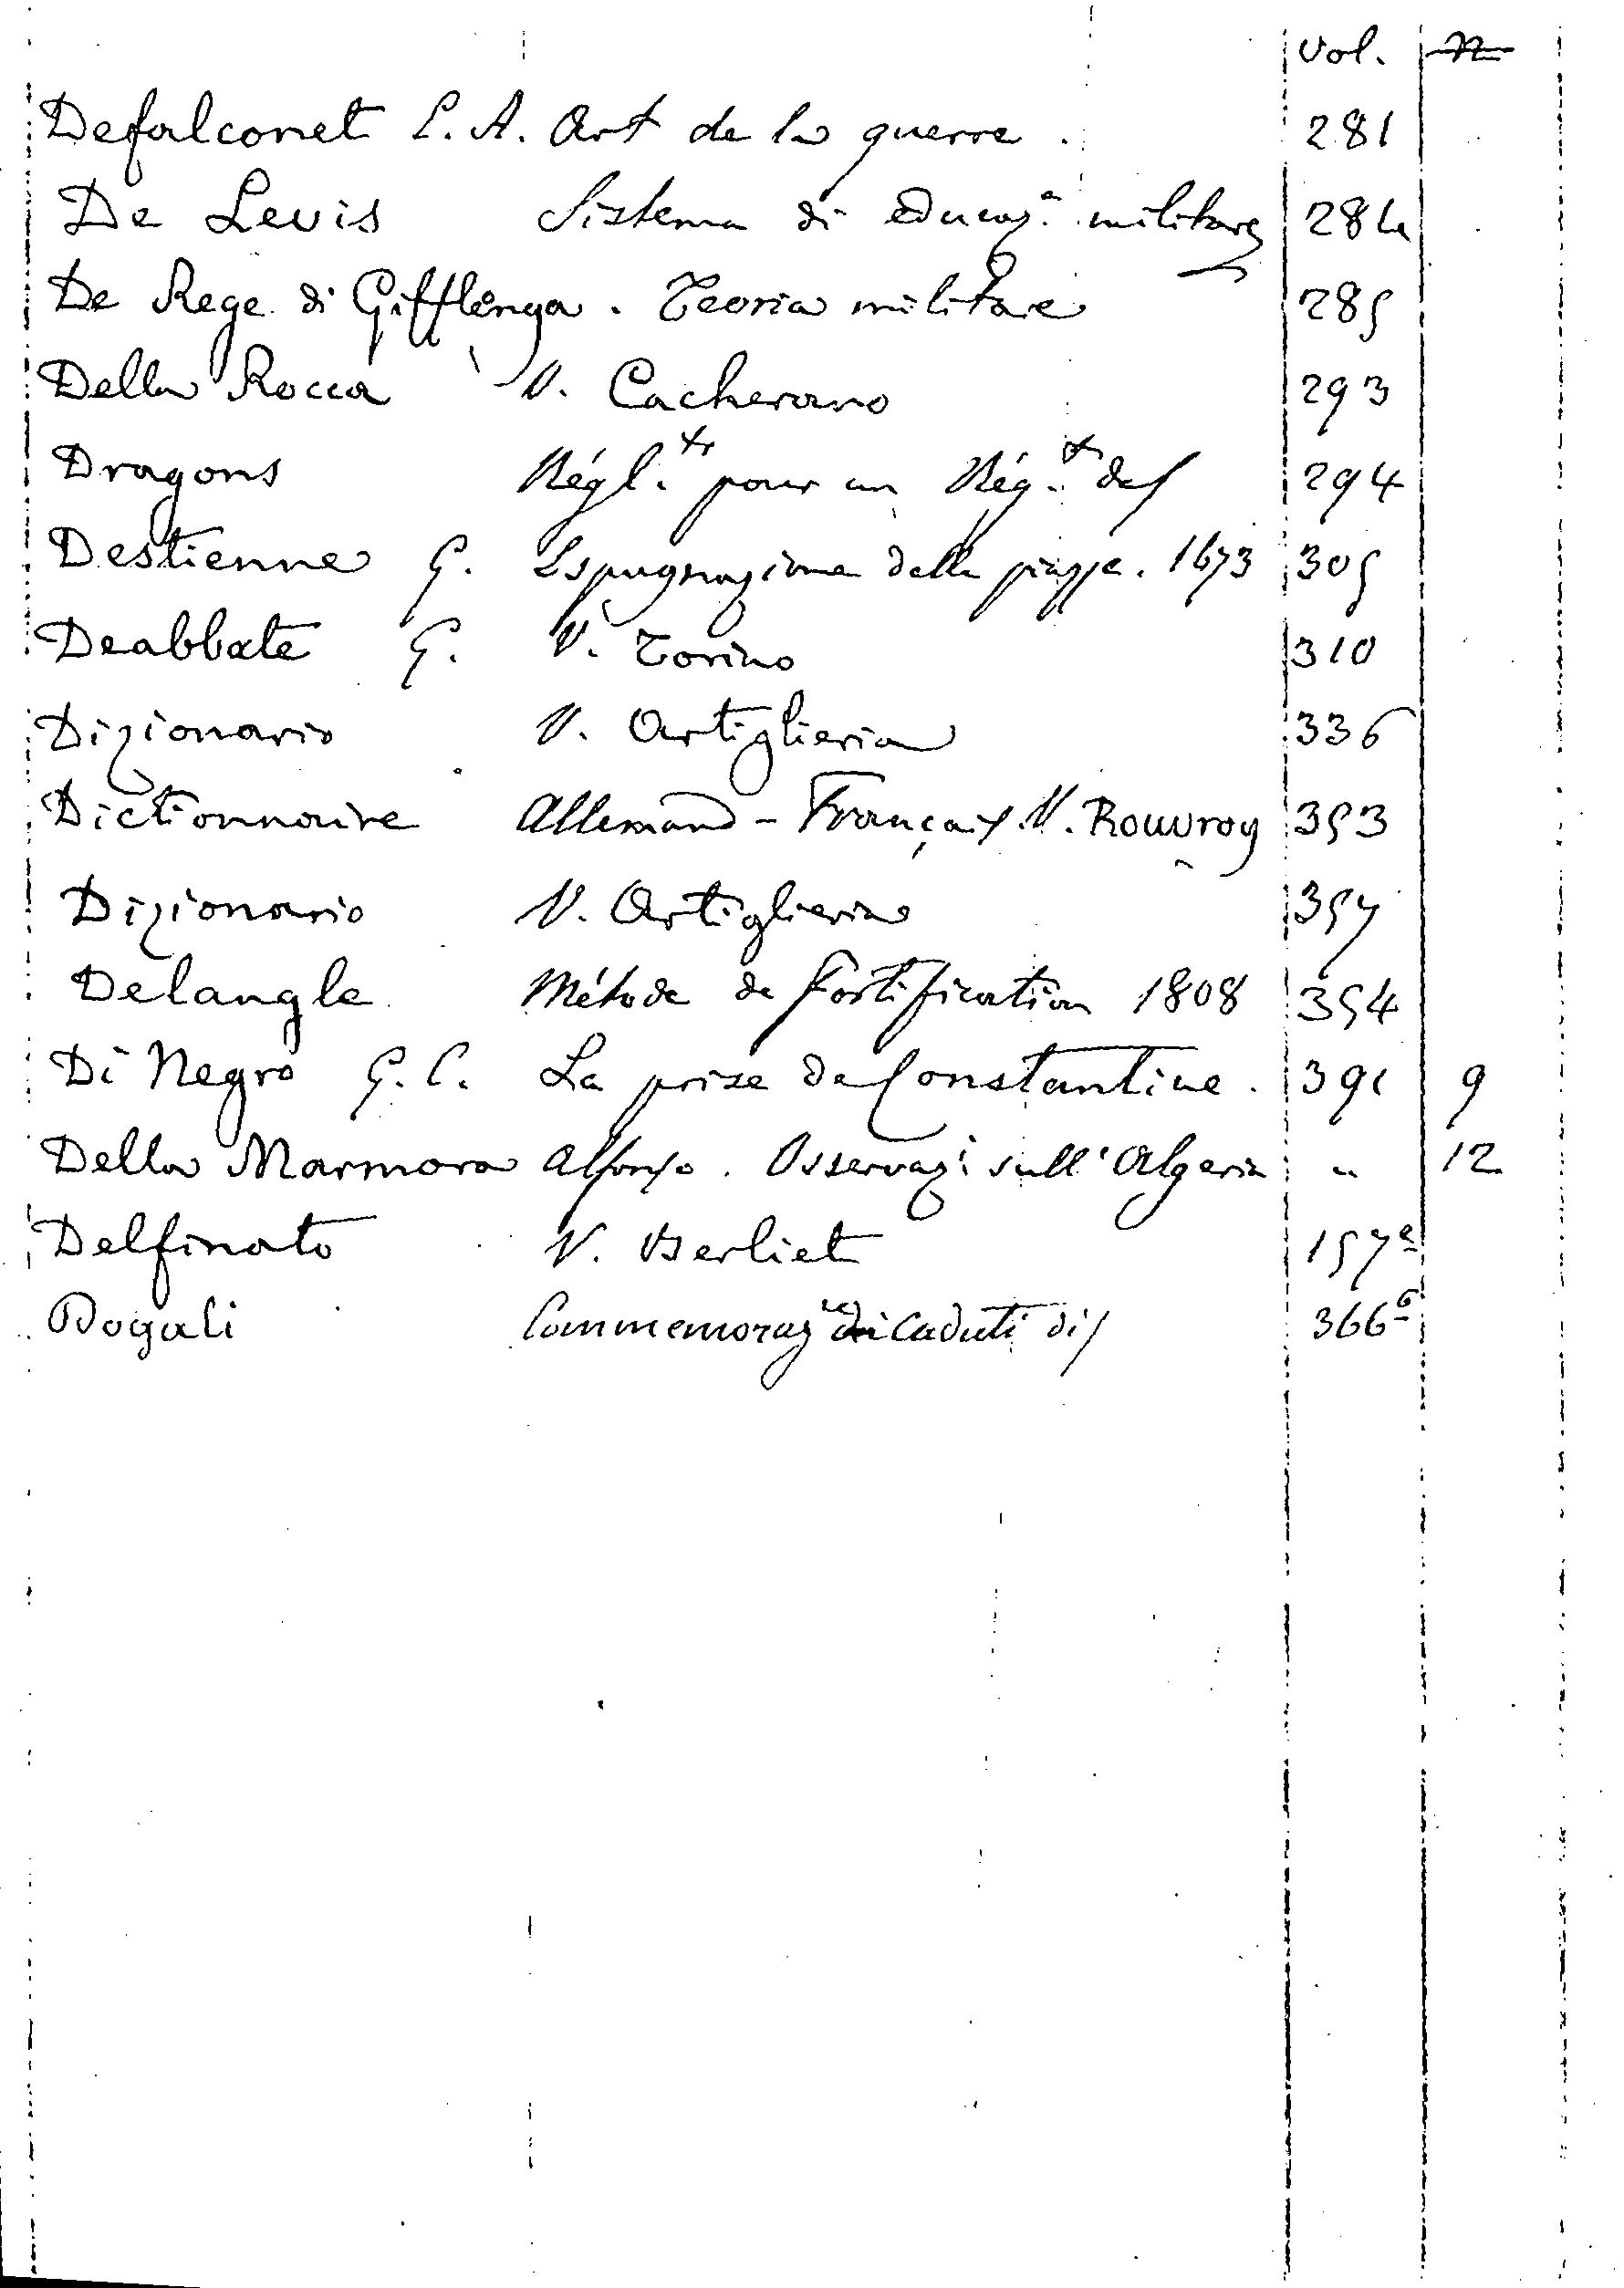 Vol. n
Defalconet C. A. Art de la guerre . 281
De Levis Sistema di educaz.e militare 284
De Rege di Gifflenga . Teoria militare 285
Della Rocca V. Cacherano 293
Dragons Régl.t pour un Rég.t de/ 294
Destienne G. Espugnazione delle piazze. 1673 305
Deabbate G. V. Torino 310
Dizionario V. Artiglieria 336
Dictionnaire Allemand - Français V. Rouvroy 353
Dizionario V. Artiglieria 357
Delangle Métode de Fortification 1808 354
Di Negro G. C. La prise de Constantine . 391 9
Della Marmora Alfonso . Osservaz.i sull' Algeria " 12
Delfinato V. Berliet 157a
Dogali Commemoraz ne dei Caduti di/ 3666